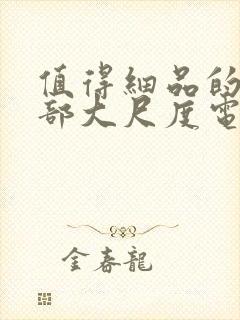 值得細品的
部大尺度電
金春龍